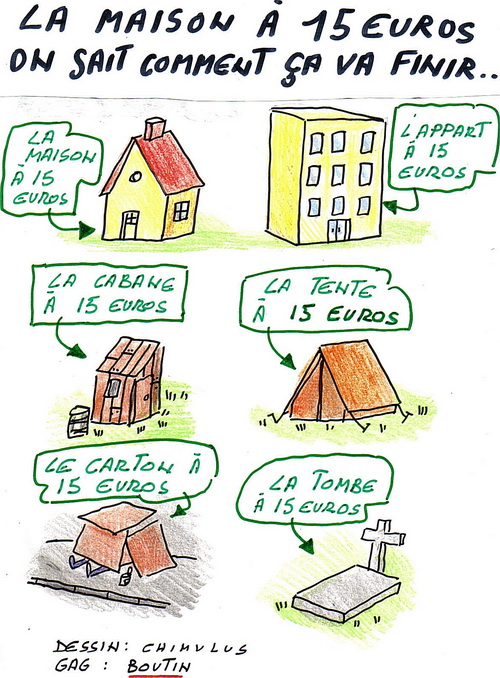 LA MAISON À 15 EUROS
ON SAIT COMMENT ÇA VA FINIR..
LA
MAISON
À 15
EUROS
L'APPART
À 15
EUROS
LA CABANE
À 15 EUROS
LA TENTE
À 15 EUROS
LE CARTON À
15 EUROS
LA TOMBE
À 15 EUROS
DESSIN: CHIMULUS
GAG : BOUTIN